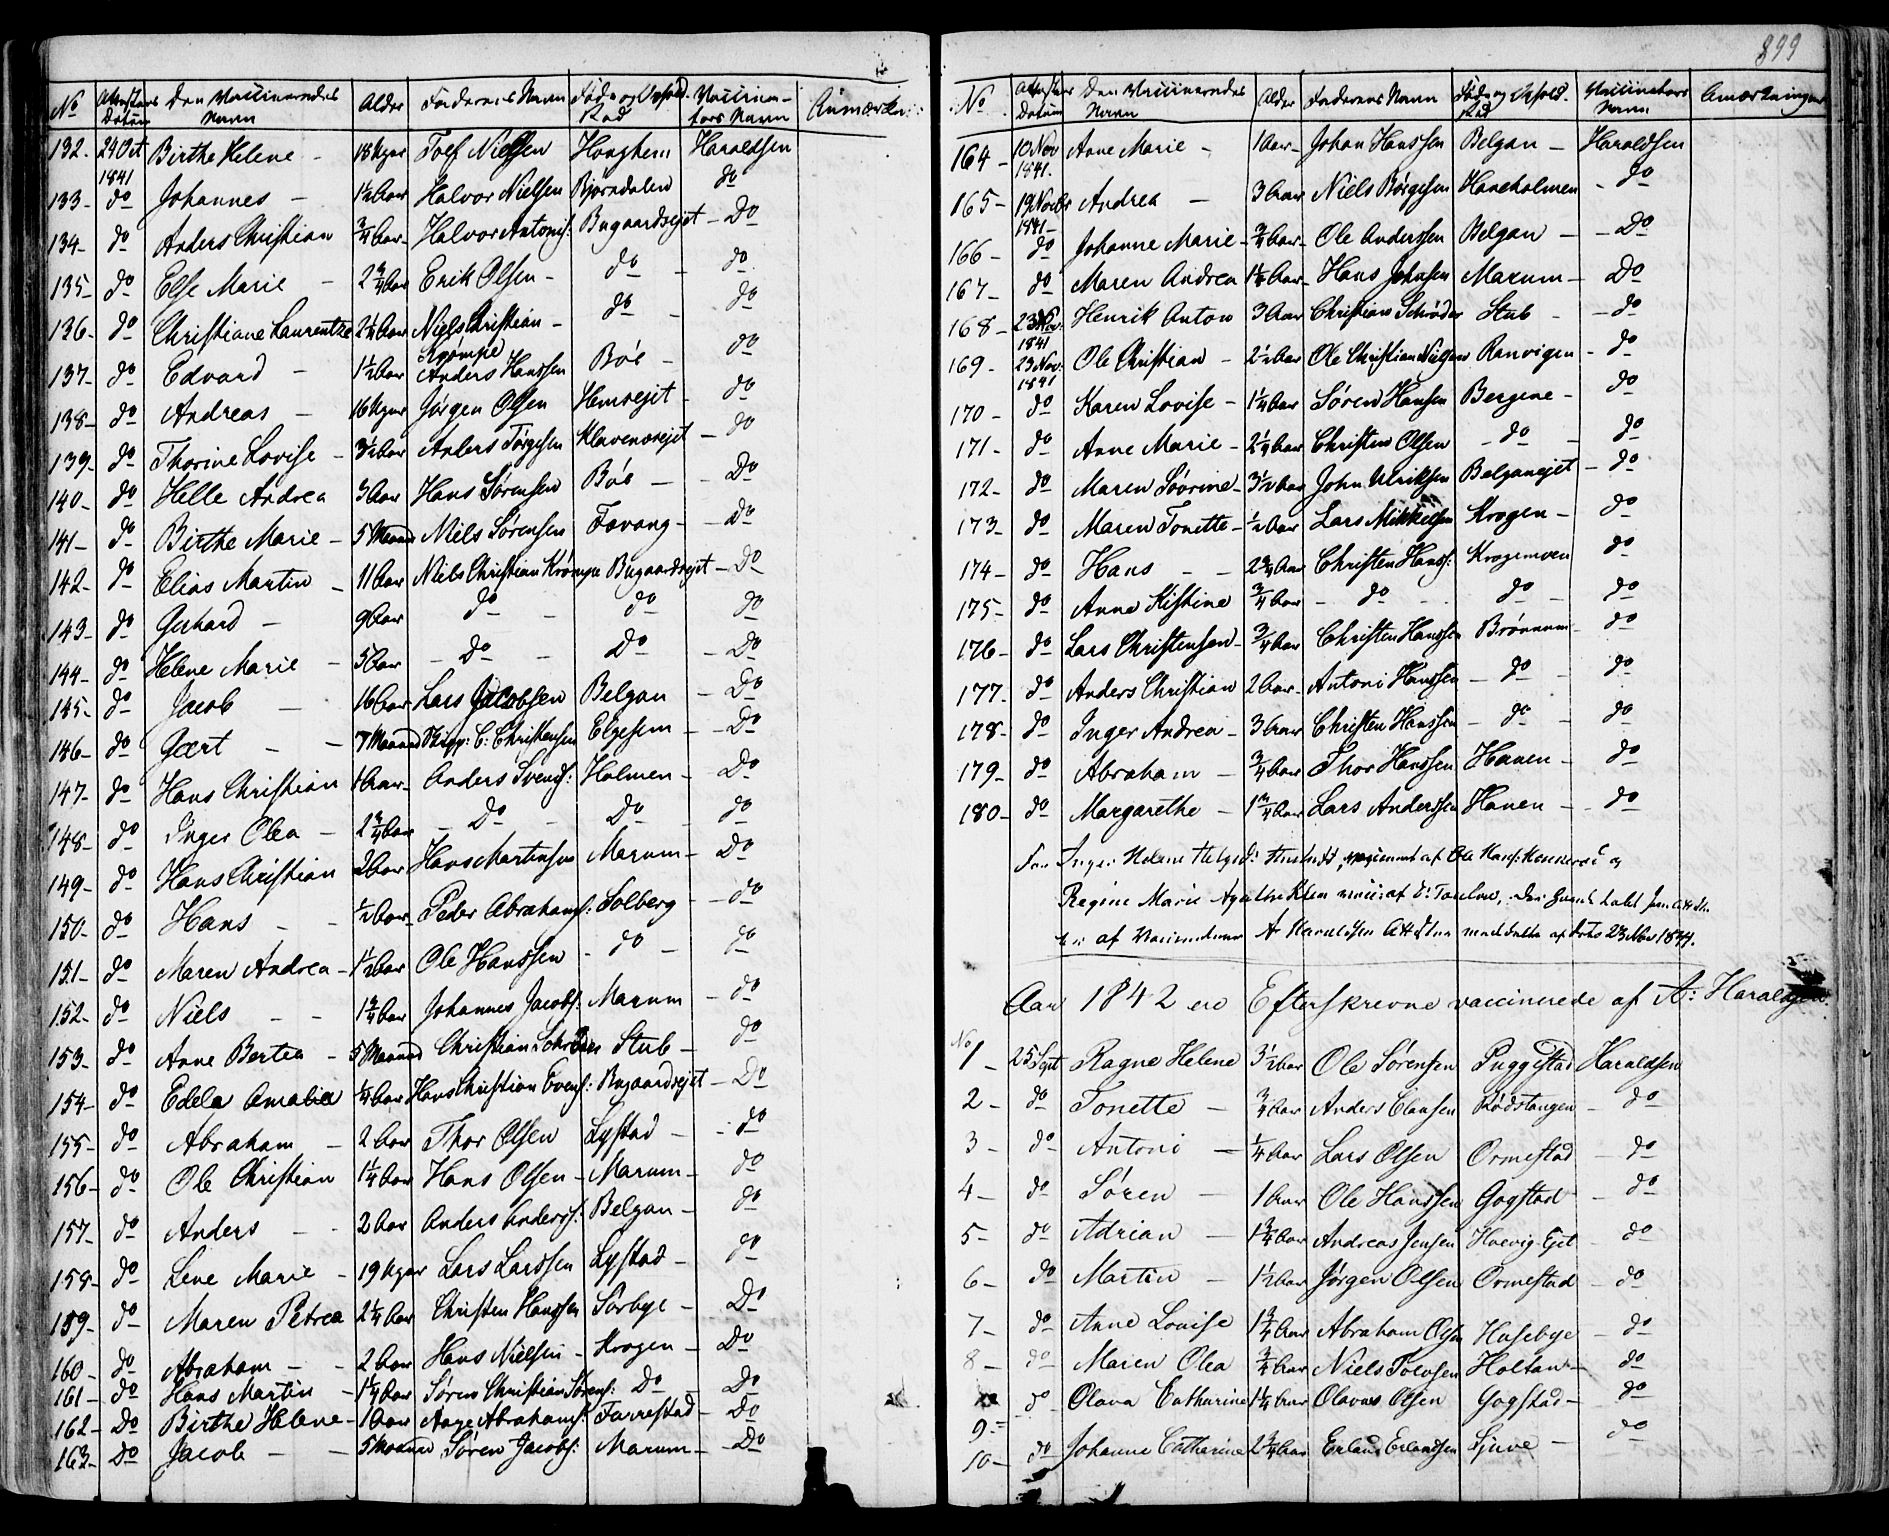 899
No Attestens Datum Den Vaccineredes Navn Alder Faderens Navn Føde og Ophold. Sted Vaccina- tørs Navn Anmærkn:
132. 24 Oct 1841 Birthe Helene - 18 Uger Toef Nielsen Haraldsen
133- do Johannes - 1½ Aar Halvor Nielsen Bjørndalen do
134- do Anders Christian ¾ Aar Halvor Antonis: Bugaardsejet - Do
135- do Else Marie - 2¾ Aar Erik Olsen - do - do
136- do Christiane Laurentze 2½ Aar Niels Christian - Krømpe do - do
137- do Edvard - 1½ Aar Anders Hanssen Bøe - do
138- do Andreas - 16 Uger Jørgen Olsen Hemsejet - do
139- do Thorine Lovise - 3½ Aar Anders Jørgesen Klavenæsejet - do
140- do Helle Andrea 3 Aar Hans Sørensen Bøe - Do
141- do Birthe Marie - 5 Maaned Niels Sørensen Fevang - Do
142- do Elias Martin - 11 Aar Niels Christian Krømpe Bugaardsejet - Do
143- do Gerhard - 9 Aar do - do do
144- do Helene Marie - 5 Aar - Do - Do - Do
145- do Jacob - 16 Aar Lars Jacobsen Belgau - Do
146- do Gært - - 7 Maaned Skipp: C: Christensen Elgesem - Do
147- do Hans Christian 1 Aar Anders Svends: Holmen - Do
148- do Inger Olea - 2¾ Aar - Do - Do - do
149- do Hans Christian 2 Aar Hans Martinsen Marum - Do
150- do Hans - - ½ Aar Peder Abrahams: Solberg - do
151- do Maren Andrea - 1½ Aar Ole Hanssen - do - do
152- do Niels - - 1¾ Aar Johannes Jacobs: Marum - do
153- do Anne Bertea - 5 Maaned Christian Schrøder Stub - do
154- do Edele Amalia ¼ Aar Hans Christian Evens: Bugaardsejet - Do
155- do Abraham - 2 Aar Thor Olsen Lystad - do
156- do Ole Christian 1¼ Aar Hans Olsen - Marum - do
157- do Anders - - 2 Aar Anders Anderss: Belgau - do
158- do Lene Marie - 19 Uger Lars Larssen Lystad - do
159- do Maren Petrea 2¼ Aar Christen Hanssen Sørbye - Do
160- do Abraham - - 2 Aar Hans Nielsen - Krogen - Do
161- do Hans Martin - 1¼ Aar Søren Christian Sørens: Do - Do
162- Do Birthe Helene - 1 Aar Aage Abrahams: Farrestad - Do
163- Do Jacob - - 5 Maaned Søren Jacobs: Marum - Do
No. Attestens Datum Den Vaccineredes Navn Alder Faderens Navn Føde og Ophold. Sted Vaccinatørs Navn Anmærkninger
164 - 10 Nov 1841. Anne Marie - 1 Aar - Johan Hanssen Belgau - Haraldsen
165 - 19 Novbr 1841 - Andrea - 3 Aar Niels Børgesen Haneholmen - do
166 - do Johanne Marie - ¾ Aar - Ole Anderssen Belgau - - Do
167 - do Maren Andrea 1¼ Aar - Hans Johnsen Marum - Do
168 - 23 Nov: 1841 Henrik Anton 3 Aar Christian Schrøder Stub - - do
169 - 23 Nov: 1841 Ole Christian - 2½ Aar Ole Christian Nielsen Ranvigen - do
170 - do Karen Lovise - 1¼ Aar Søren Hansen Bergene - do
171 - do Anne Marie - 2¼ Aar Christen Olsen - do - do
172 - do Maren Severine - 3½ Aar John Ulriksen Belgauejet - do
173 - do Maren Tonette - ½ Aar Lars Mikkelsen Krogen - do
174 - do Hans - - 2¾ Aar Christen Hanss: Krogemoen do
175 - do Anne Kistine ¾ Aar - do - do - do
176 - do Lars Christensen - ¾ Aar Christen Hanssen Brønnum - do
177. do Anders Christian 2 Aar - Antoni Hanssen - do - do
178 - do Inger Andrea - 3 Aar Christen Hanssen - do - do
179 - do Abraham - ¾ Aar Thor Hanssen Hauen - do
180 - do Margarethe - 1¾ Aar Lars Anderssen Hauen - do
Regine Marie
af Vaccinateur A Haraldsen 23 Nov 1844.
Aar 1842 ere Efterskrevne vaccinerede af A: Haraldsen
No 1 - 25 Sept Ragne Helene 3½ Aar Ole Sørensen Puggestad Haraldsen
2 - do Tonette - ¾ Aar Anders Clausen Rødstangen - do
3 - do Antoni - ¼ Aar Lars Olsen Ormestad - do
4 - do Søren - 1 Aar Ole Hanssen Gogstad - do
5 - do Adrian - 1¾ Aar Andreas Jensen Huevig Ejet - do
6 - do Martin - 1½ Aar Jørgen Olsen Ormestad - do
7 - do Anne Lovise 1¾ Aar Abraham Olsen Husebye - do
8 - do Maren Olea ¾ Aar Niels Toevsen Holtan - do
9 - do Olava Catharine 1¼ Aar Olavus Olsen Gogstad - do
10 - do Johanne Catherine 2¾ Aar Erland Erlandsen Sjuve - do